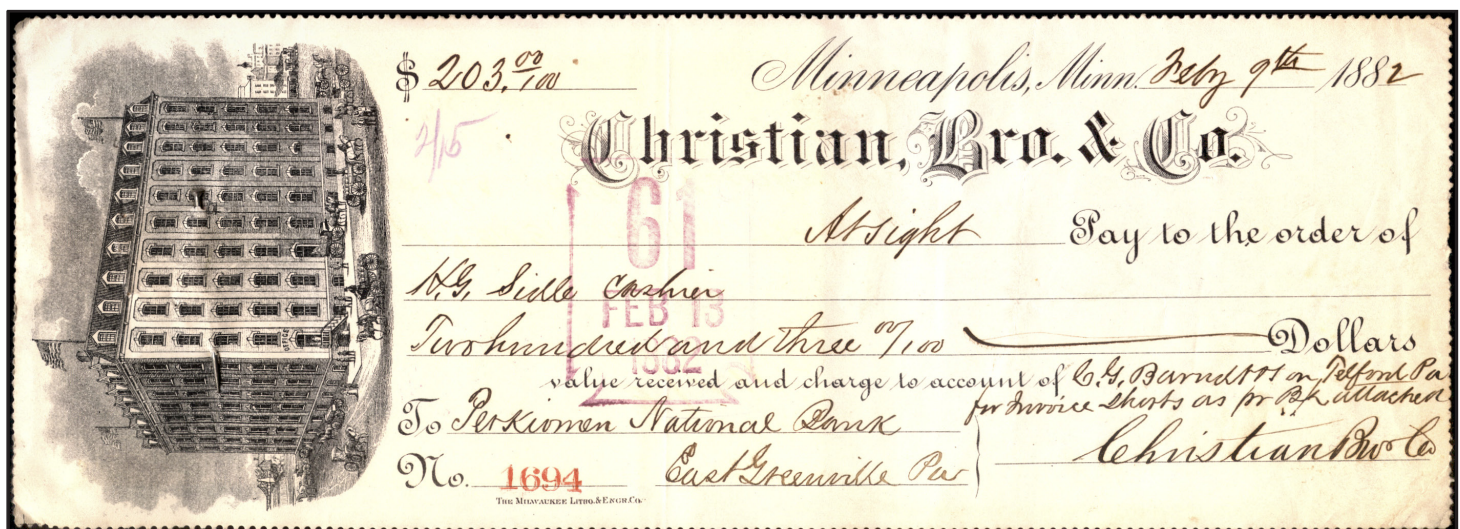 $ 203.00/100
Minneapolis, Minn. Feby 9th 1882
2/15
Christian, Bro. & Co.
61
FEB 13
1882
At sight Pay to the order of
H.G. Sidle Cashier
Two hundred and three 00/100 Dollars
value received and charge to account of C.G. Barndt & Son, Telford Pa
for Invoice Shorts as pr B/L attached
To Perkiomen National Bank
East Greenville Pa
Christian Bro & Co
No. 1694
THE MILWAUKEE LITHO. & ENGR. CO.
OFFICE